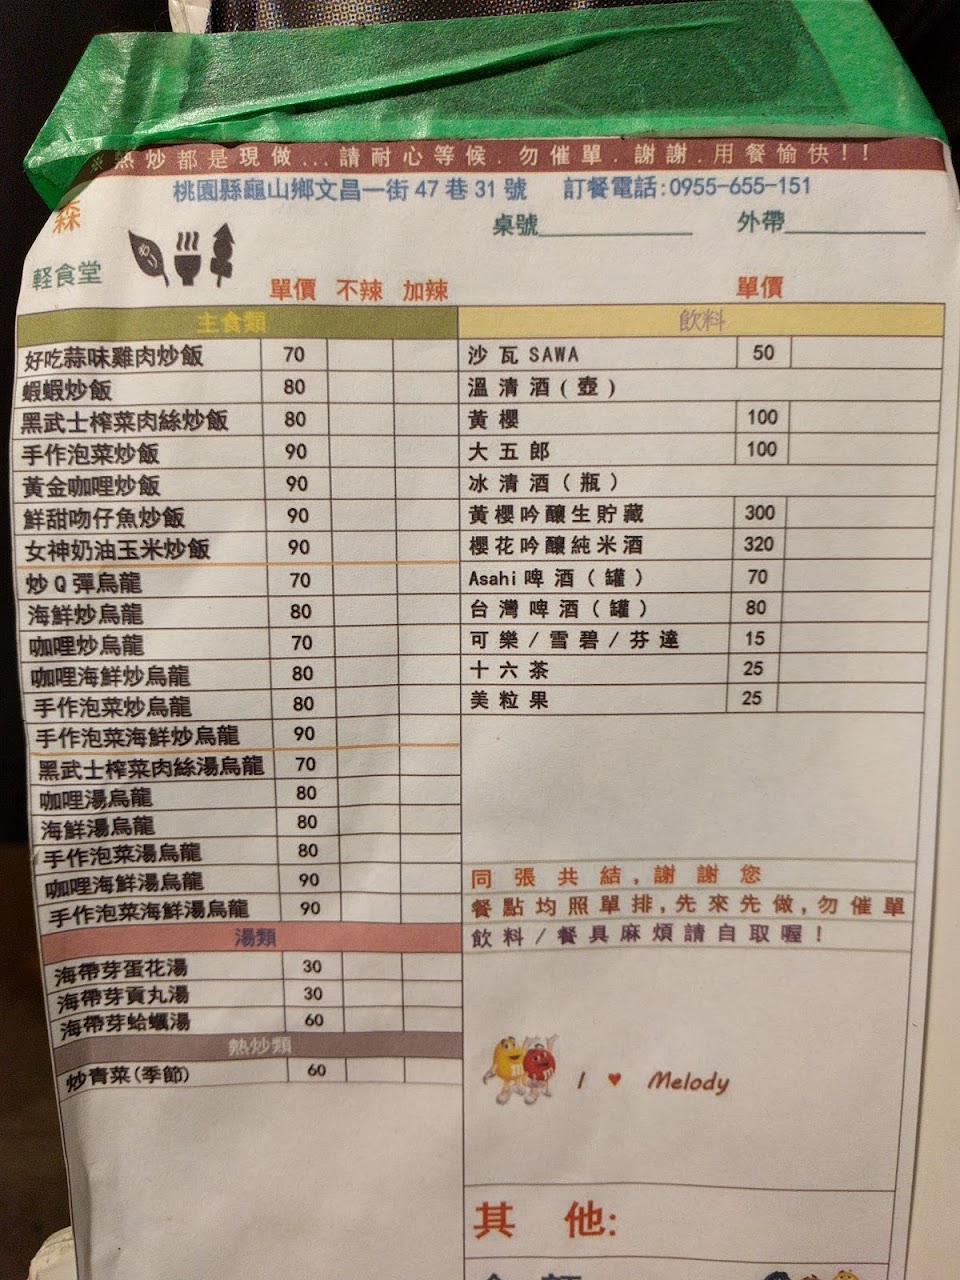 ※熱炒都是現做...請耐心等候.勿催單.謝謝.用餐愉快!!
桃園縣龜山鄉文昌一街47巷31號 訂餐電話:0955-655-151
森
桌號 外帶
軽食堂
單價 不辣 加辣 單價
主食類
好吃蒜味雞肉炒飯 70
蝦蝦炒飯 80
黑武士榨菜肉絲炒飯 80
手作泡菜炒飯 90
黃金咖哩炒飯 90
鮮甜吻仔魚炒飯 90
女神奶油玉米炒飯 90
炒Q彈烏龍 70
海鮮炒烏龍 80
咖哩炒烏龍 70
咖哩海鮮炒烏龍 80
手作泡菜炒烏龍 80
手作泡菜海鮮炒烏龍 90
黑武士榨菜肉絲湯烏龍 70
咖哩湯烏龍 80
海鮮湯烏龍 80
手作泡菜湯烏龍 80
咖哩海鮮湯烏龍 90
手作泡菜海鮮湯烏龍 90
湯類
海帶芽蛋花湯 30
海帶芽貢丸湯 30
海帶芽蛤蠣湯 60
熱炒類
炒青菜(季節) 60
飲料
沙瓦SAWA 50
溫清酒(壺)
黃櫻 100
大五郎 100
冰清酒(瓶)
黃櫻吟釀生貯藏 300
櫻花吟釀純米酒 320
Asahi啤酒(罐) 70
台灣啤酒(罐) 80
可樂/雪碧/芬達 15
十六茶 25
美粒果 25
同張共結,謝謝您
餐點均照單排,先來先做,勿催單
飲料/餐具麻煩請自取喔!
I ♥ Melody
其 他: